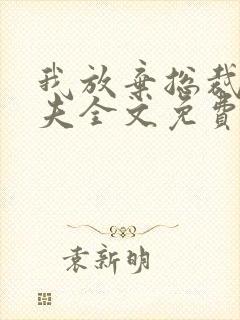 我放弃总裁
夫全文免费
袁新明